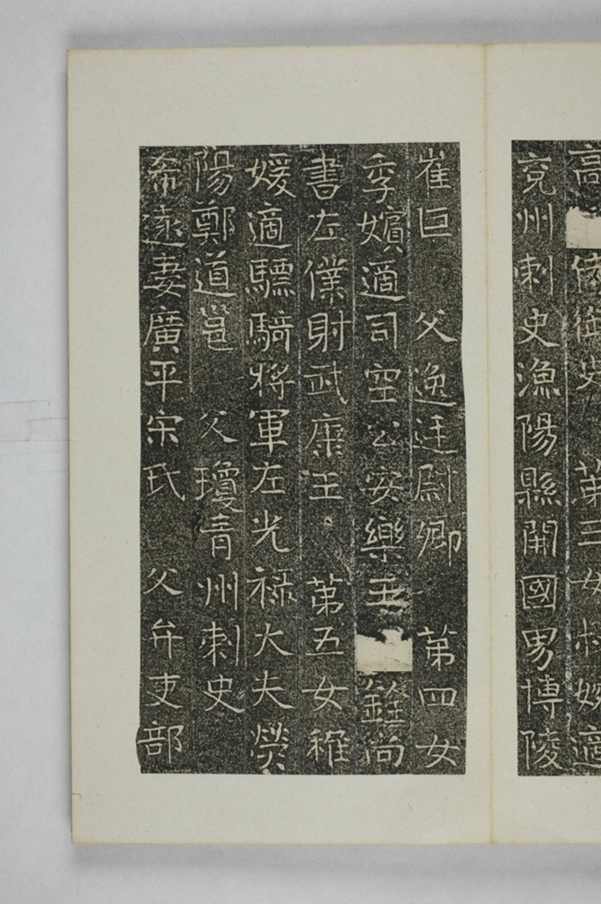 高 侍御史 第三女叔婉適
兖州刺史漁陽縣開國男博陵
崔巨 父逸廷尉卿 第四女
季嬪適司空公安樂王 銓尚
書左僕射武康王 第五女稚
媛適驃騎將軍左光禄大夫熒
陽鄭道邕 父瓊青州刺史
希遠妻廣平宋氏 父弁吏部